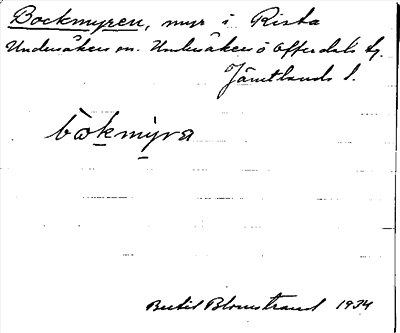 Bockmyren, myr i Rista
Undersåkers sn. Undersåkers o Offerdals tg.
Jämtlands l.
bòkmýra
Bertil Blomstrand 1934